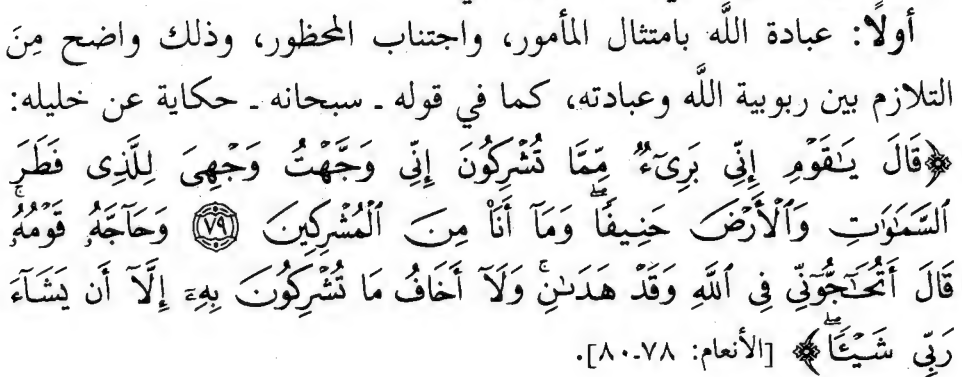 أولًا: عبادة اللَّه بامتثال المأمور، واجتناب المحظور، وذلك واضح مِنَ
التلازم بين ربوبية اللَّه وعبادته، كما في قوله ـ سبحانه ـ حكاية عن خليله:
﴿قَالَ يَـٰقَوْمِ إِنِّى بَرِىٓءٌ مِّمَّا تُشْرِكُونَ إِنِّى وَجَّهْتُ وَجْهِىَ لِلَّذِى فَطَرَ
ٱلسَّمَـٰوَٰتِ وَٱلْأَرْضَ حَنِيفًاۖ وَمَآ أَنَا۠ مِنَ ٱلْمُشْرِكِينَ ۝٧٩ وَحَآجَّهُۥ قَوْمُهُۥۚ
قَالَ أَتُحَـٰٓجُّوٓنِّى فِى ٱللَّهِ وَقَدْ هَدَىٰنِۚ وَلَآ أَخَافُ مَا تُشْرِكُونَ بِهِۦٓ إِلَّآ أَن يَشَآءَ
رَبِّى شَيْـًٔاۗ﴾ [الأنعام: ٧٨ـ٨٠].